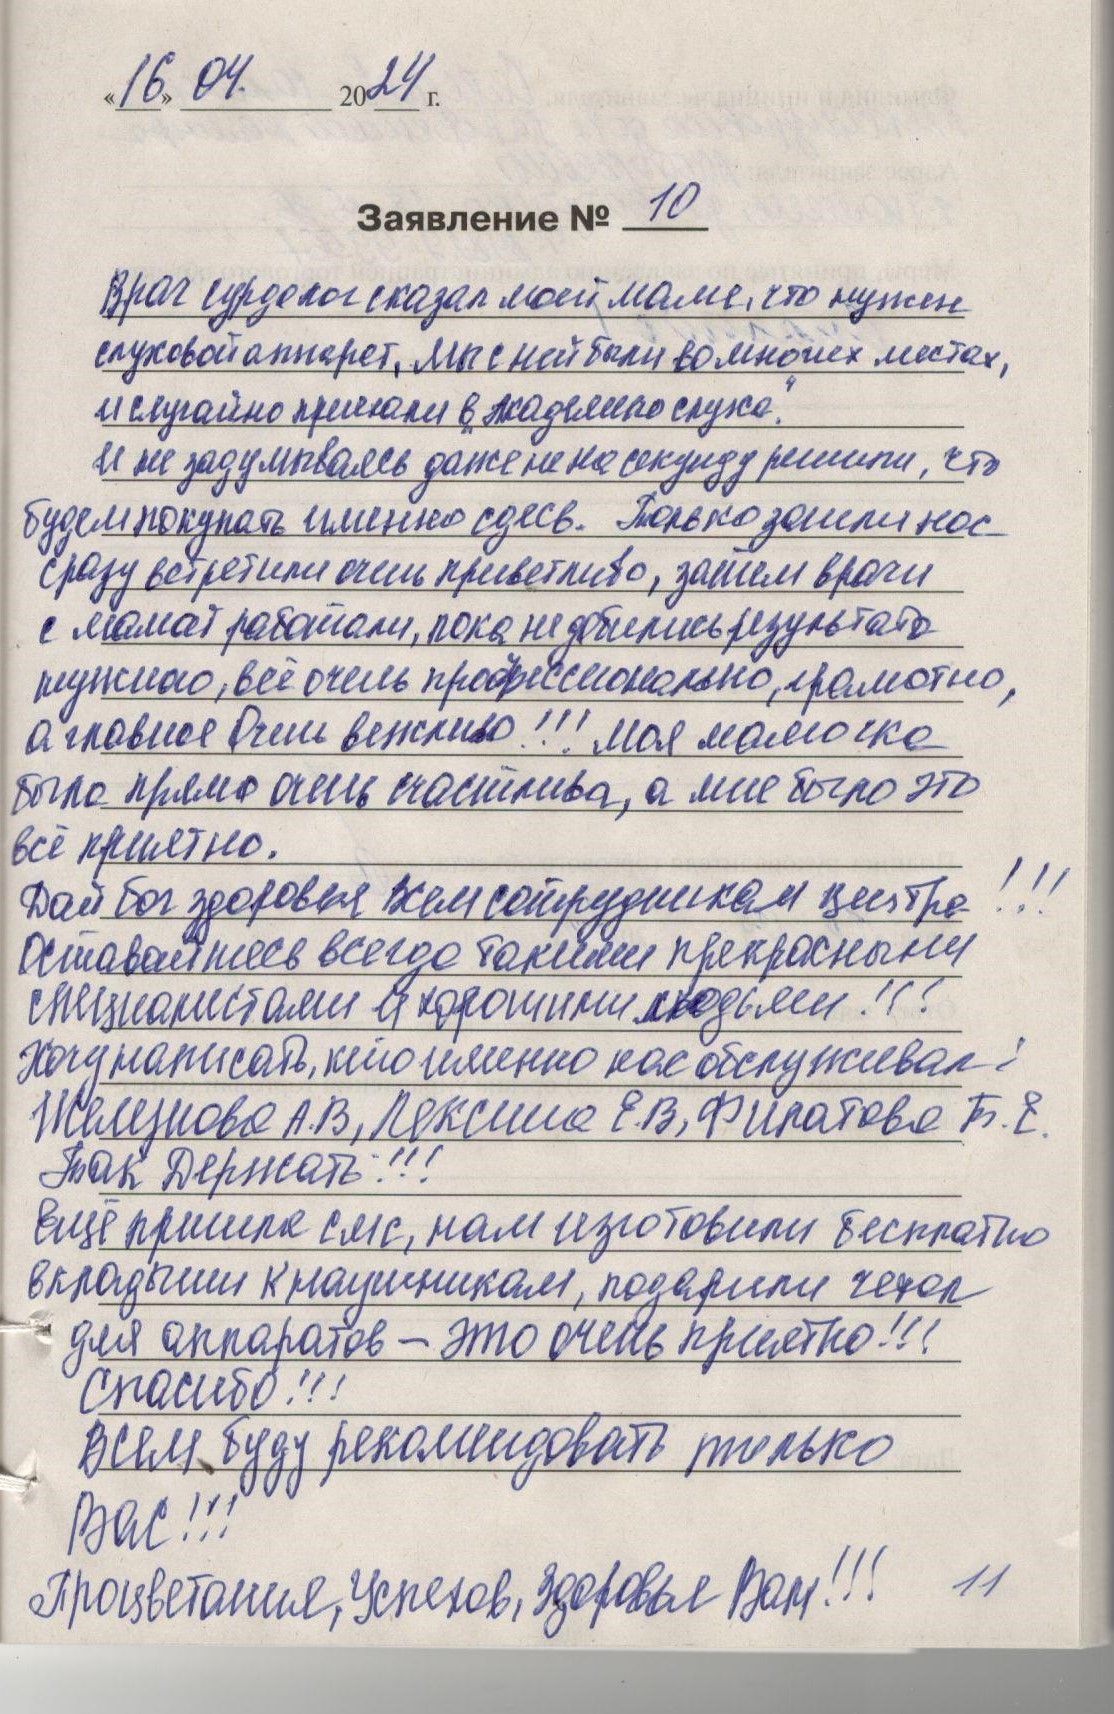 «16» 04. 2024 г.
Заявление № 10
Врач сурдолог сказал моей маме, что нужен
слуховой аппарат, мы с ней были во многих местах,
и случайно приехали в „Академию слуха".
И не задумываясь даже не на секунду решили, что
будем покупать именно сдесь. Только зашли нас
сразу встретили очень приветливо, затем врачи
с мамой работали, пока не добились результата
нужного, всё очень профессионально, грамотно,
а главное Очень вежливо!!! Моя мамочка
была прямо очень счастлива, а мне было это
всё приятно.
Дай бог здоровья всем сотрудникам центра!!!
Оставайтесь всегда такими прекрасными
специалистами и хорошими людьми!!!
Хочу написать, кто именно нас обслуживал:
Железнова А.В, Лексина Е.В, Филатова Т.Е.
Так Держать!!!
Ещё пришла смс, нам изготовили бесплатно
вкладыши к наушникам, подарили чехол
для аппаратов – это очень приятно!!!
Спасибо!!!
Всем буду рекомендовать только
Вас!!!
Процветания, Успехов, Здоровья Вам!!!
11